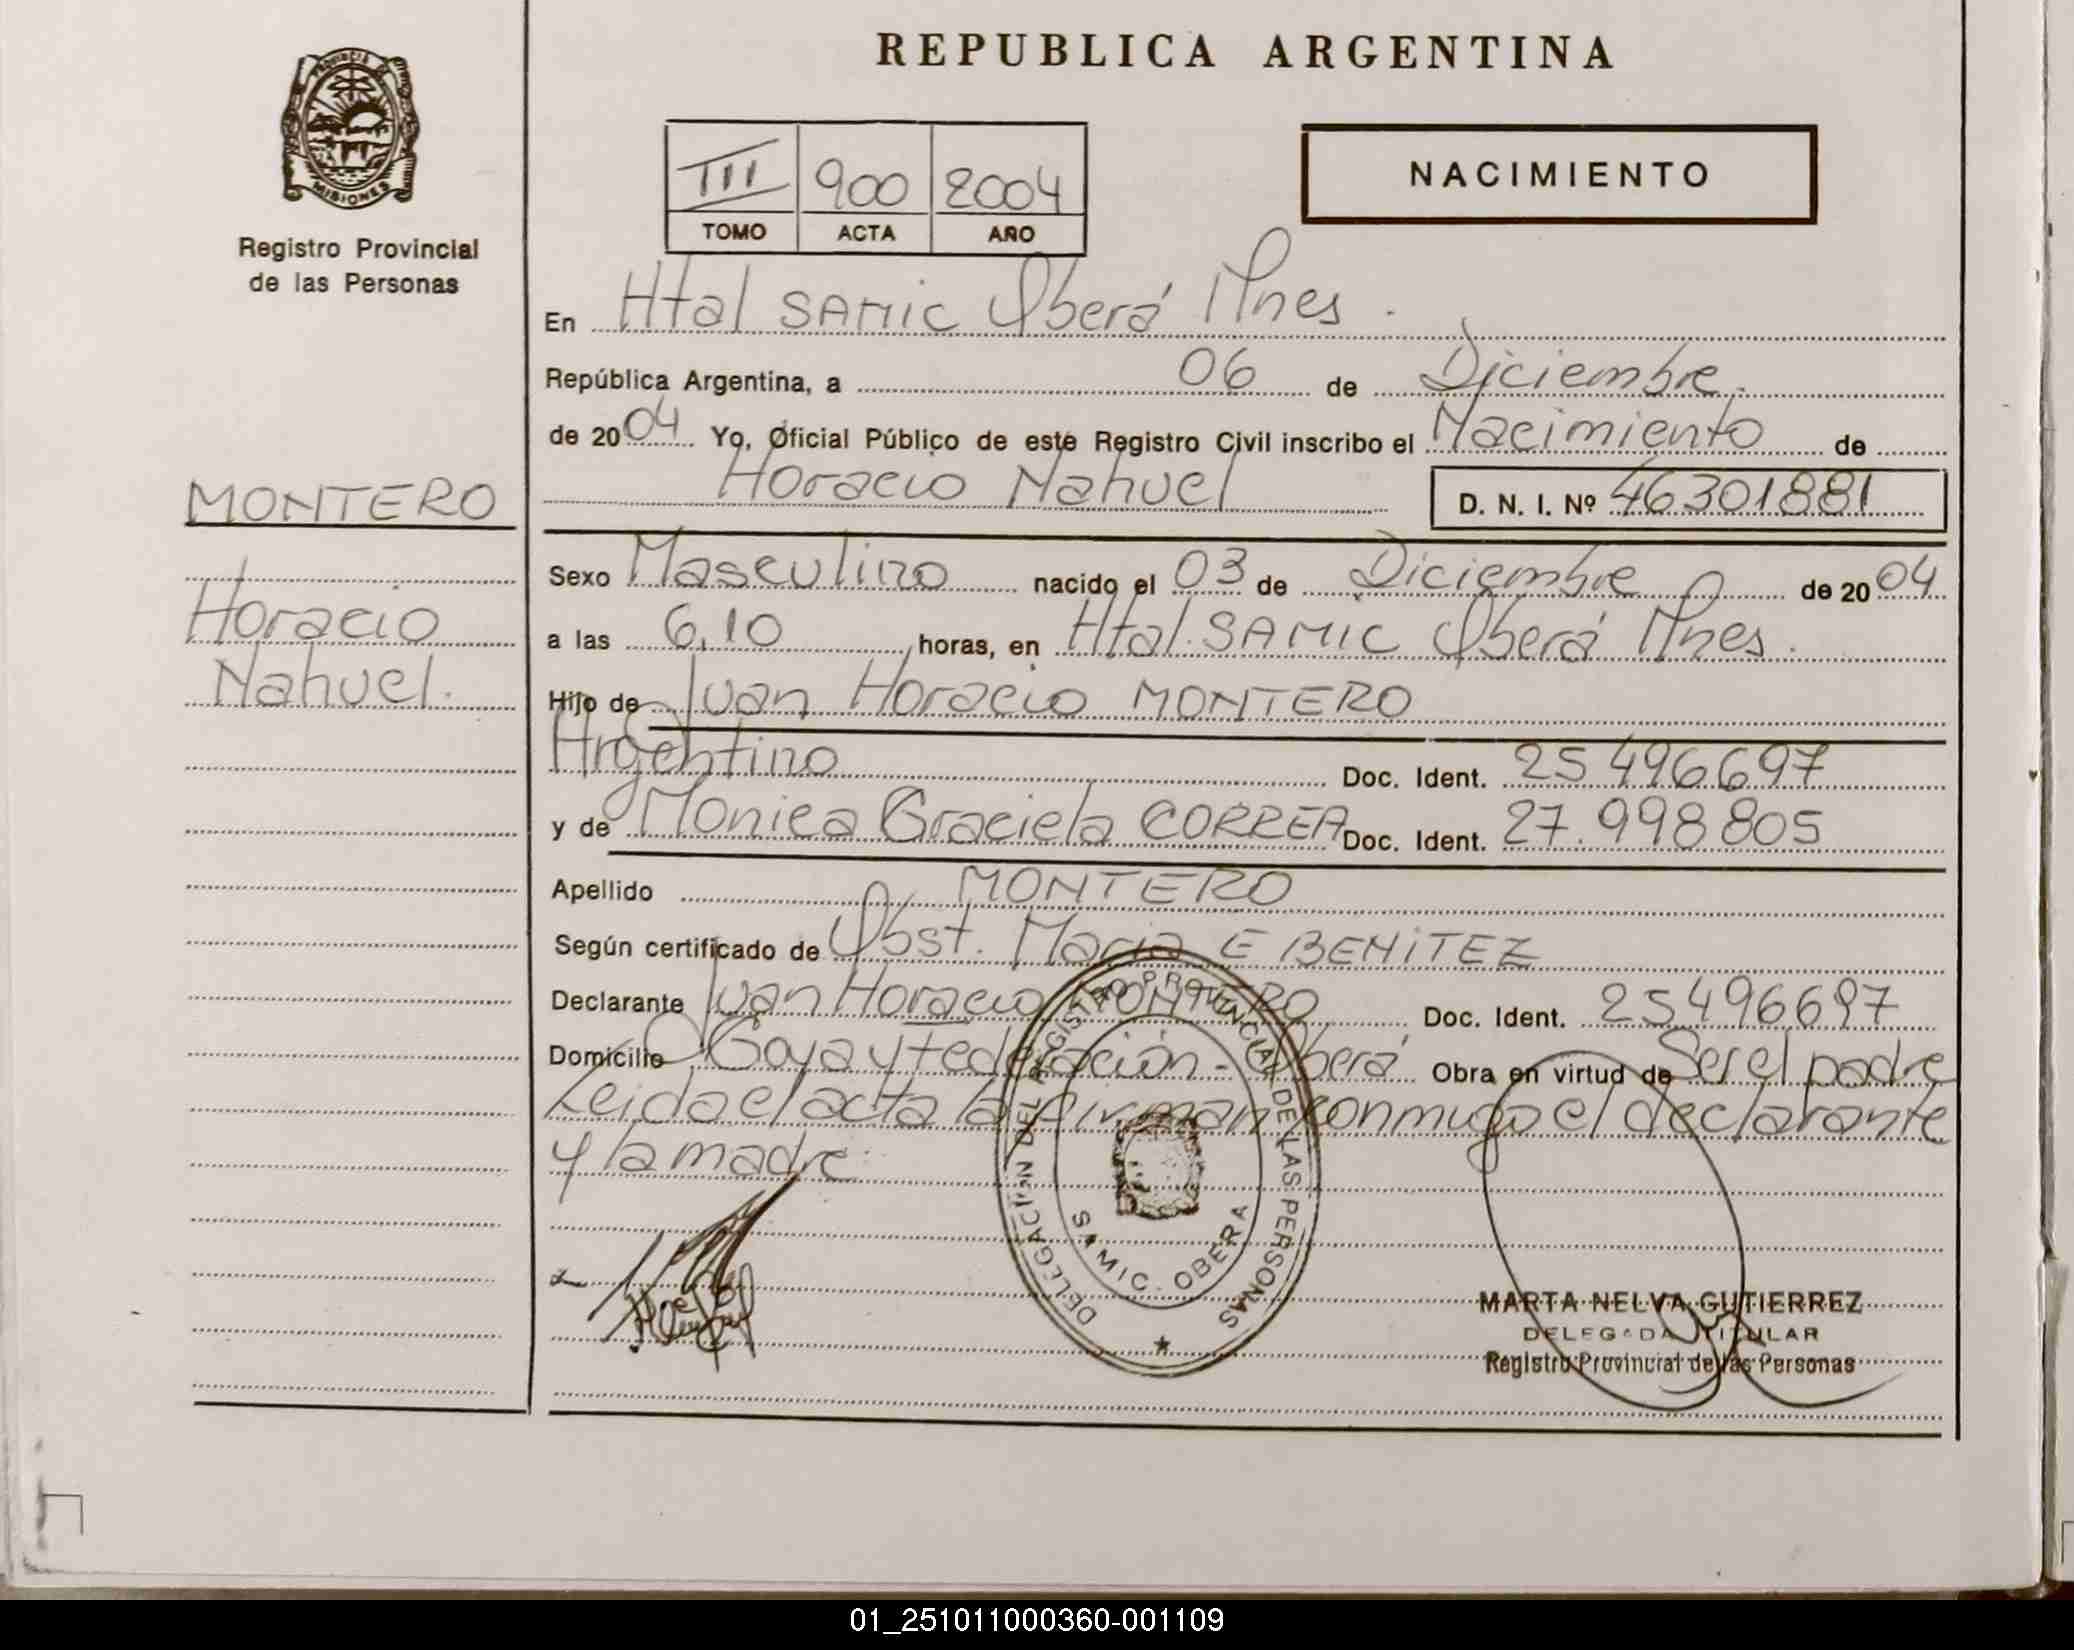 REPUBLICA ARGENTINA
PROVINCIA DE
MISIONES
Registro Provincial
de las Personas
III 900 2004
TOMO ACTA AÑO
NACIMIENTO
En Htal SAMIC Oberá Mnes.
República Argentina, a 06 de Diciembre.
de 2004 Yo, Oficial Público de este Registro Civil inscribo el Nacimiento de
Horacio Nahuel D. N. I. Nº 46301881
MONTERO
Horacio
Nahuel.
Sexo Masculino nacido el 03 de Diciembre de 2004
a las 6,10 horas, en Htal. SAMIC Oberá Mnes.
Hijo de Juan Horacio MONTERO
Argentino Doc. Ident. 25496697
y de Monica Graciela CORREA Doc. Ident. 27.998805
Apellido MONTERO
Según certificado de Obst. Maria E BENITEZ
Declarante Juan Horacio MONTERO Doc. Ident. 25496697
Domicilio Goya y Federación - Oberá Obra en virtud de Ser el padre
Leida el acta la firman conmigo el declarante
y la madre.
DELEGACION DEL REGISTRO PROVINCIAL DE LAS PERSONAS
SAMIC. OBERA
MARTA NELVA GUTIERREZ
DELEGADA TITULAR
Registro Provincial de las Personas
01_251011000360-001109